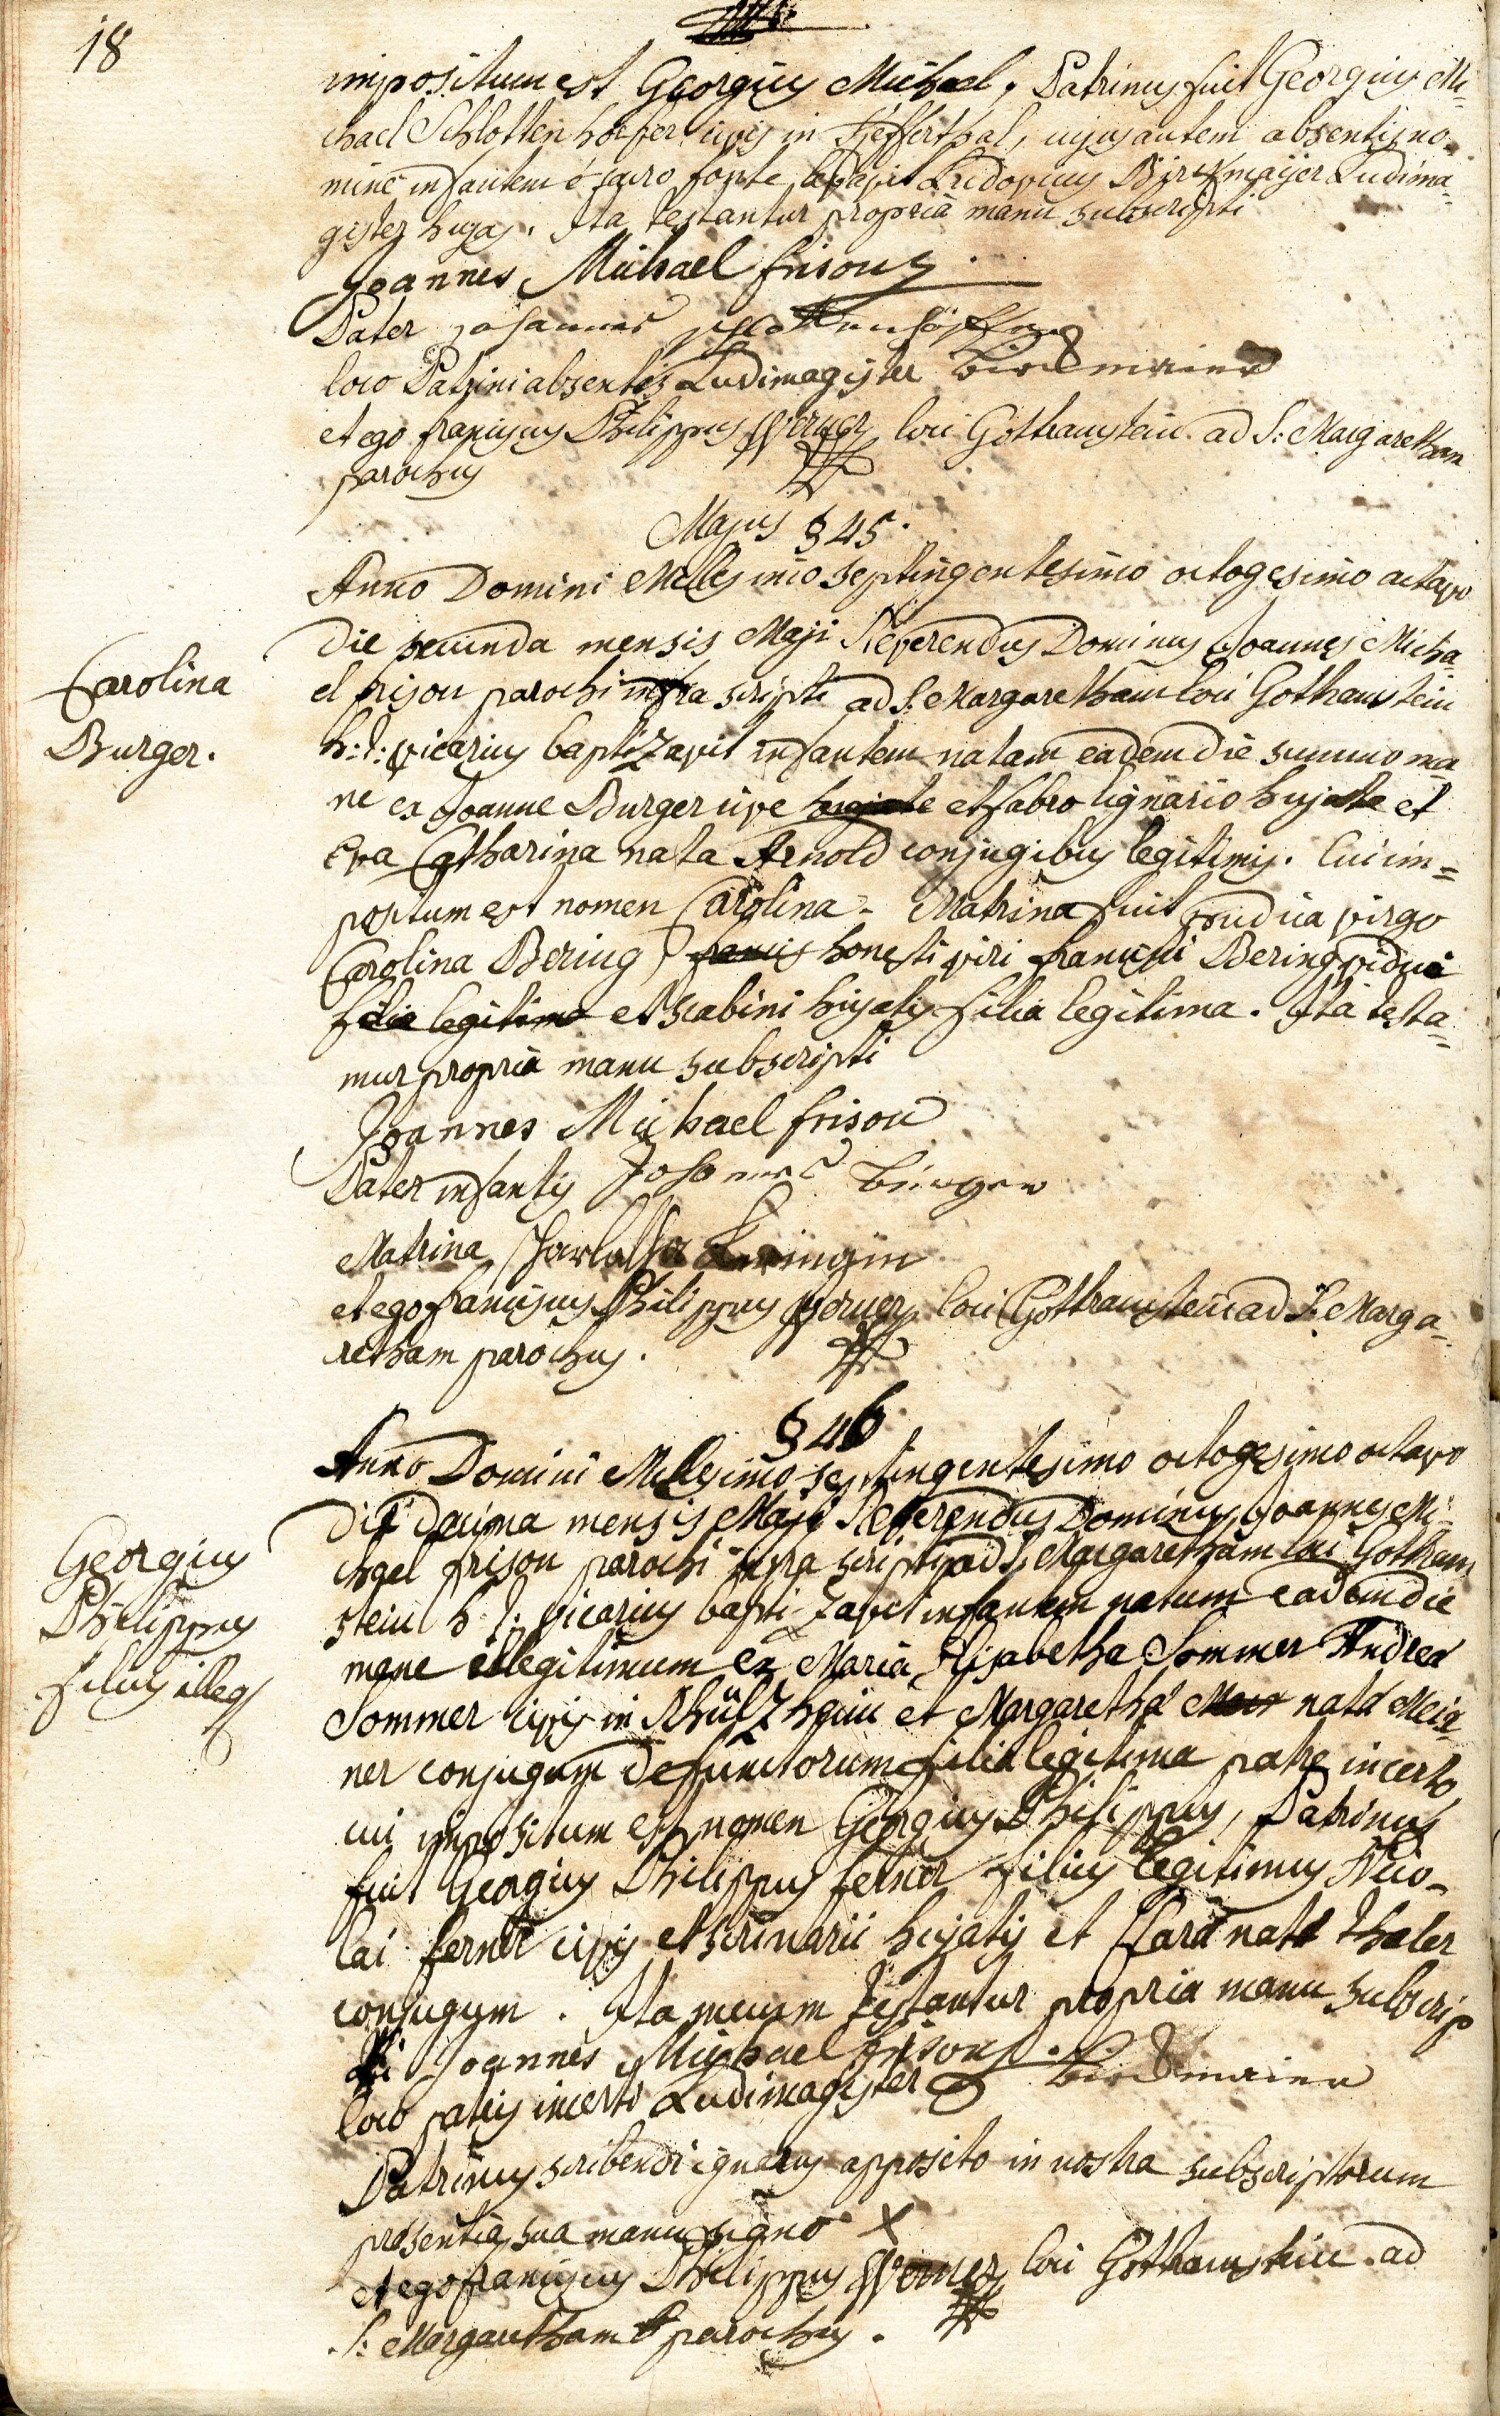 18
impositum est Georgius Michael, Patrinus fuit Georgius Mi-
chael Schlottenhöfer civis in , cujus autem absentis no-
mine infantem è sacro fonte levavit Ludovicus Ludima-
gister hujas. Ita testantur propria manu subscripti
Joannes Michael frison
Pater Johannes
loco Patrini absentis Ludimagister
et ego franciscus Philippus Werner loci Gotthamstein ad S: Margaretham
parochus
Majus § 45.
Anno Domini Millesimo septingentesimo octogesimo octavo
die secunda mensis Maji Reverendus Dominus Joannes Micha-
el frison parochi infra scripti ad S. Margaretham loci Gothamstein
h: t: vicarius baptizavit infantem natam eadem die summo ma
ne ex Joanne Burger cive et fabro lignario hujate et
Eva Catharina nata Arnold conjugibus legitimis. Cui im=
positum est nomen Carolina. Matrina fuit pudica virgo
Carolina Bering honesti viri francisci Bering vidui
filia legitima et scabini hujatis filia legitima. Ita testa-
mur propria manu subscripti
Carolina
Burger.
Joannes Michael frison
Pater infantis Johannes Burger
Matrina
et ego franciscus Philippus Werner loci Gotthamstein ad S. Marga-
retham parochus.
§ 46
Anno Domini Millesimo septingentesimo octogesimo octavo
die decima mensis Maji Reverendus Dominus Joannes Mi-
chael frison parochi infra scripti ad S. Margaretham loci Gotham
stein h. t. vicarius baptizavit infantem natum eadem die
mane illegitimum ex Maria Elisabetha Sommer Andrea
Sommer civis in et Margaretha nata
ner conjugum defunctorum filia legitima patre incerto,
cui impositum est nomen Georgius Philippus, Patrinus
fuit Georgius Philippus ferner filius legitimus Nico-
lai ferner civis et scrinarii hujatis et Clara nata Thaler
conjugum. Ita mecum testantur propria manu subscrip
ti Joannes Michael frison
Georgius
Philippus
filius illeg
loco patris incerti Ludimagister
Patrinus scribendi ignarus apposito in nostra subscriptorum
presentia sua manu signo X
et ego franciscus Philippus Werner loci Gotthamstein ad
S: Margaretham parochus.